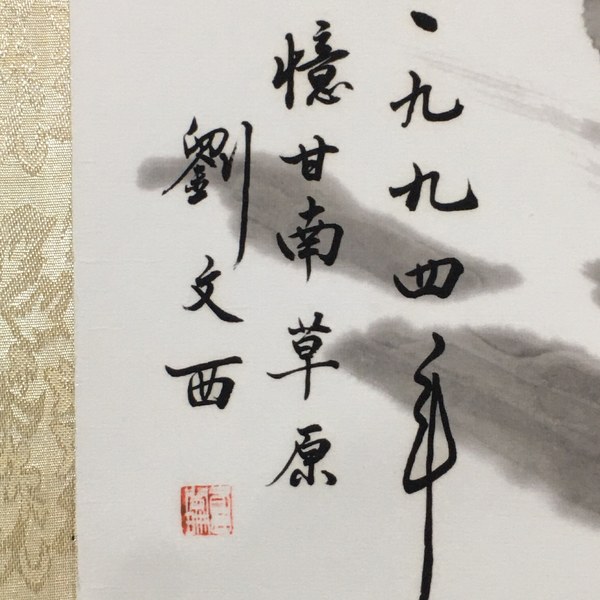 一九九四年
憶甘南草原
劉文西